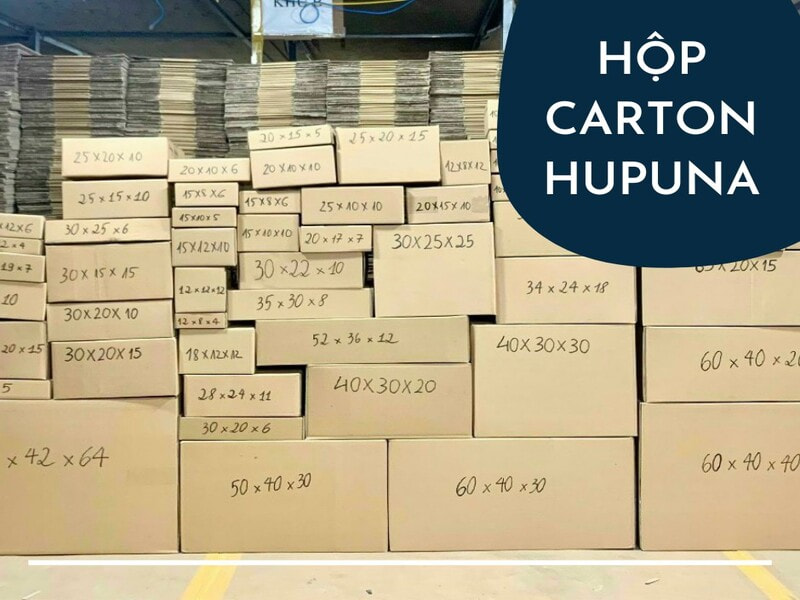 KHU 8
HỘP
CARTON
HUPUNA
20 x 15 x 5
25 x 20 x 15
25 x 20 x 10
20 x 10 x 6
20 x 10 x 10
12 x 8 x 12
25 x 15 x 10
15 x 8 x 6
15 x 8 x 6
25 x 10 x 10
20 x 15 x 10
15 x 10 x 5
x 12 x 6
30 x 25 x 6
15 x 12 x 10
15 x 10 x 10
20 x 17 x 7
30 x 25 x 25
2 x 4
19 x 7
30 x 15 x 15
30 x 22 x 10
65 x 20 x 15
12 x 12 x 12
34 x 24 x 18
10
35 x 30 x 8
30 x 20 x 10
12 x 8 x 4
52 x 36 x 12
40 x 30 x 30
20 x 15
30 x 20 x 15
18 x 12 x 12
60 x 40 x 20
5
28 x 24 x 11
40 x 30 x 20
30 x 20 x 6
x 42 x 64
50 x 40 x 30
60 x 40 x 30
60 x 40 x 40